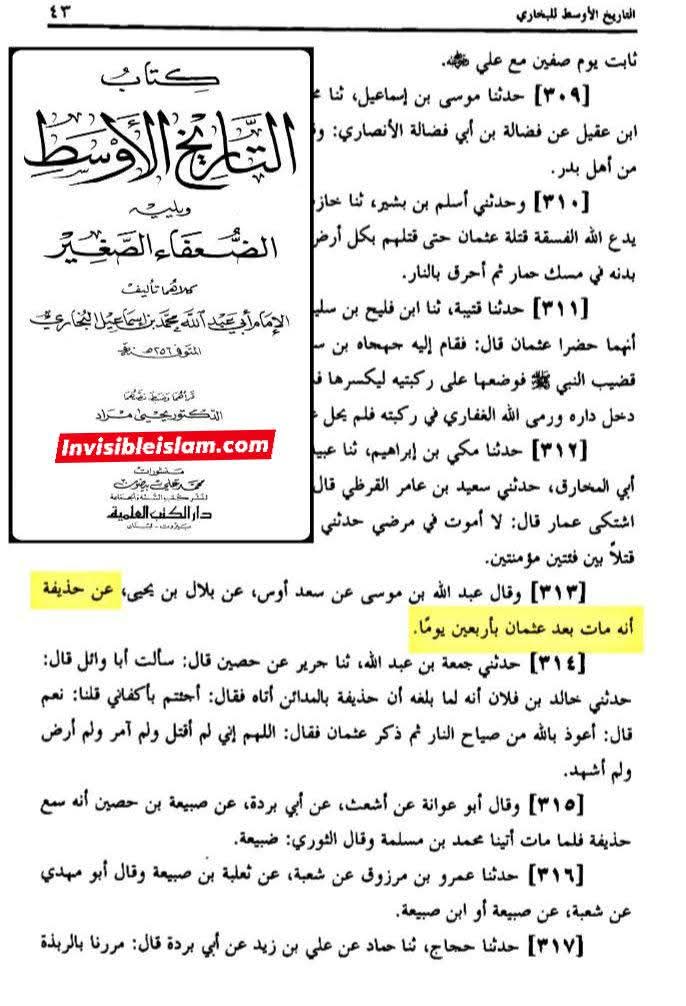 التاريخ الأوسط للبخاري
٤٣
ثابت يوم صفين مع علي ﷺ.
[٣٠٩] حدثنا موسى بن إسماعيل، ثنا
ابن عقيل عن فضالة بن أبي فضالة الأنصاري:
من أهل بدر.
[٣١٠] وحدثني أسلم بن بشير، ثنا
يدع الله الفسقة قتلة عثمان حتى قتلهم بكل أرض
بدنه في مسك حمار ثم أحرق بالنار.
[٣١١] حدثنا قتيبة، ثنا ابن فليح بن
أنهما حضرا عثمان قال: فقام إليه جهجاه بن
قضيب النبي ﷺ فوضعها على ركبتيه ليكسرها
دخل داره ورمى الله الغفاري في ركبته فلم يحل
[٣١٢] حدثنا مكي بن إبراهيم، ثنا
أبي المخارق، حدثني سعيد بن عامر القرظي قال
اشتكى عمار قال: لا أموت في مرضي حدثني
قتلاً بين فئتين مؤمنتين.
[٣١٣] وقال عبد الله بن موسى عن سعد أوس، عن بلال بن يحيى، عن حذيفة
أنه مات بعد عثمان بأربعين يومًا.
[٣١٤] حدثني جمعة بن عبد الله، ثنا جرير عن حصين قال: سألت أبا وائل قال:
حدثني خالد بن فلان أنه لما بلغه أن حذيفة بالمدائن أتاه فقال: أجئتم بأكفاني قلنا: نعم
قال: أعوذ بالله من صياح النار ثم ذكر عثمان فقال: اللهم إني لم أقتل ولم آمر ولم أرض
ولم أشهد.
[٣١٥] وقال أبو عوانة عن أشعث، عن أبي بردة، عن صبيعة بن حصين أنه سمع
حذيفة فلما مات أتينا محمد بن مسلمة وقال الثوري: ضبيعة.
[٣١٦] حدثنا عمرو بن مرزوق عن شعبة، عن ثعلبة بن صبيعة وقال أبو مهدي
عن شعبة، عن صبيعة أو ابن صبيعة.
[٣١٧] حدثنا حجاج، ثنا حماد عن علي بن زيد عن أبي بردة قال: مررنا بالربذة
كتاب
التاريخ الأوسط
ويليه
الضعفاء الصغير
كلاهما تأليف
الإمام أبي عبد الله محمد بن إسماعيل البخاري
المتوفى ٢٥٦هـ
الدكتور يحيى مراد
Invisibleislam.com
منشورات
محمد علي بيضون
لنشر كتب السنة والجماعة
دار الكتب العلمية
بيروت - لبنان